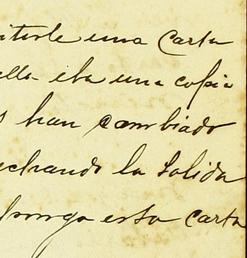 una carta
ella iba una copia
s han cambiado
echando la salida
ponga esta carta